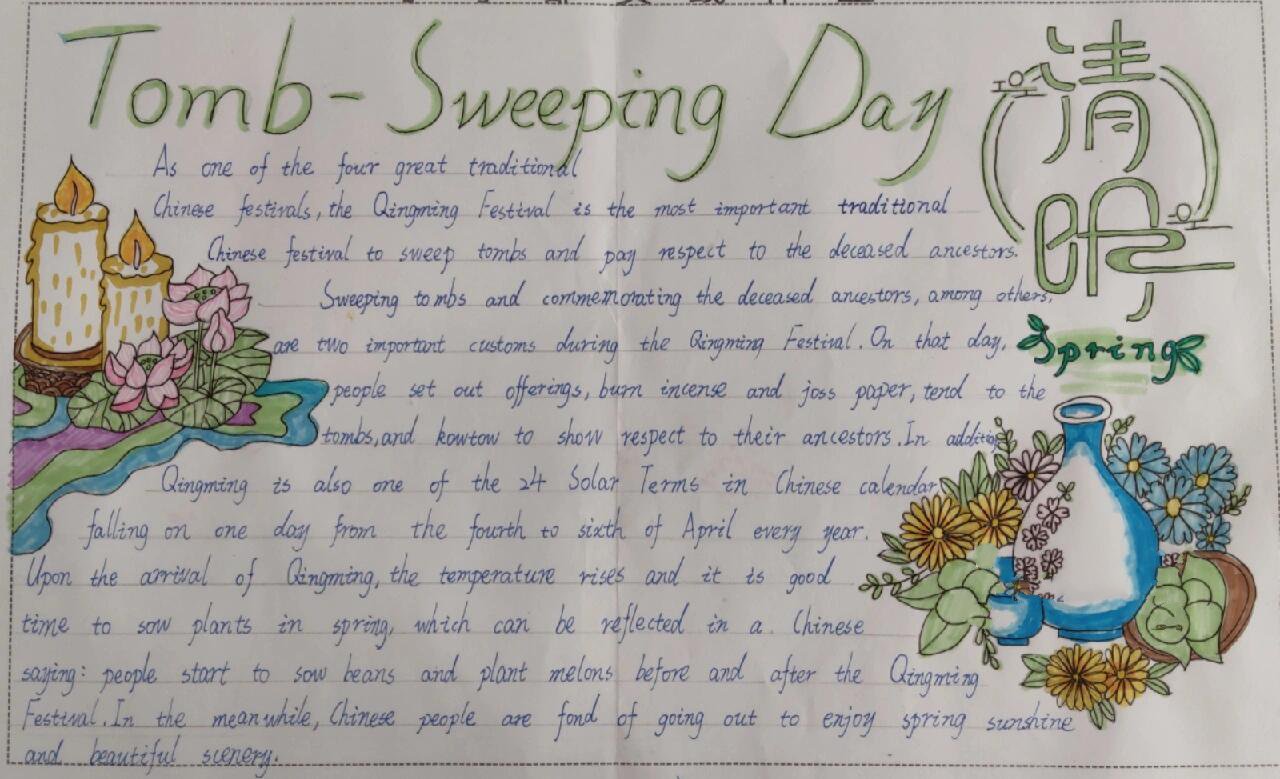 Tomb-Sweeping Day
清明
As one of the four great traditional
Chinese festivals, the Qingming Festival is the most important traditional
Chinese festival to sweep tombs and pay respect to the deceased ancestors.
Sweeping tombs and commemorating the deceased ancestors, among others,
are two important customs during the Qingming Festival. On that day,
Spring
people set out offerings, burn incense and joss paper, tend to the
tombs, and kowtow to show respect to their ancestors. In addition
Qingming is also one of the 24 Solar Terms in Chinese calendar
falling on one day from the fourth to sixth of April every year.
Upon the arrival of Qingming, the temperature rises and it is good
time to sow plants in spring, which can be reflected in a. Chinese
saying: people start to sow beans and plant melons before and after the Qingming
Festival. In the meanwhile, Chinese people are fond of going out to enjoy spring sunshine
and beautiful scenery.